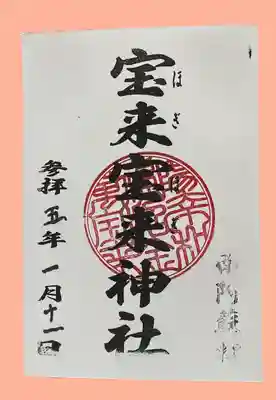 宝来宝来神社
ほぎ
ほぎ
南阿蘇村
参拝五年一月十一日